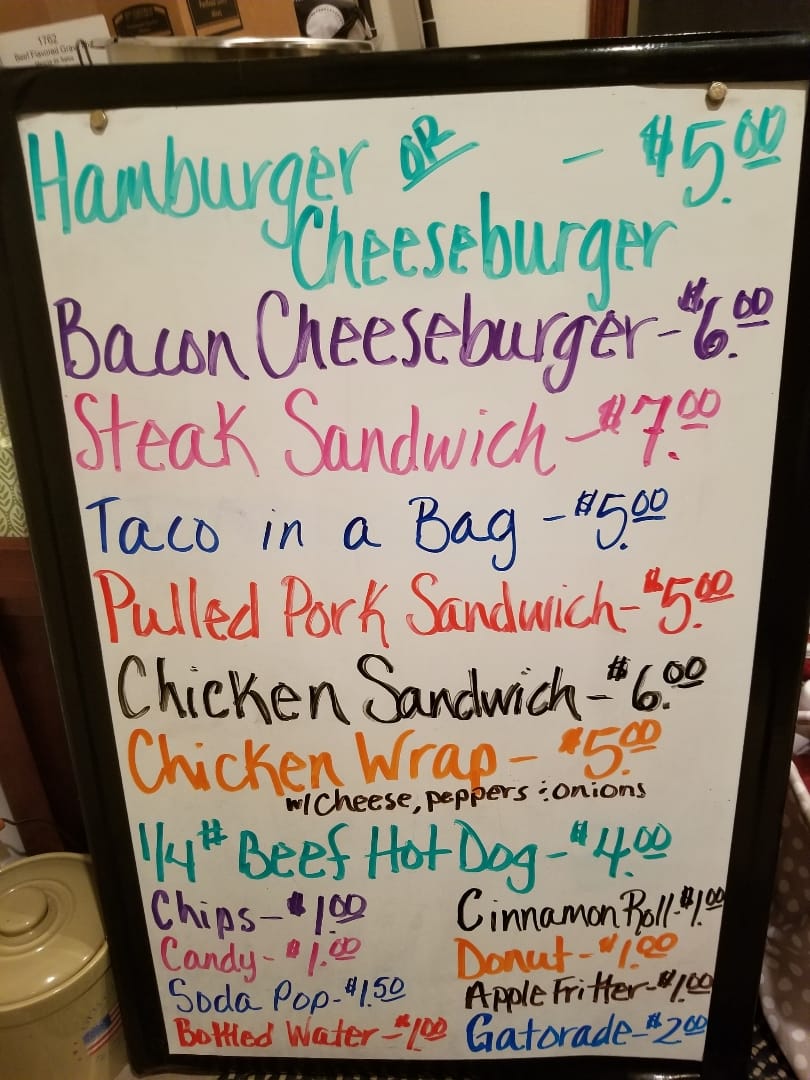 1762
Beef Flavored Grav
Hamburger OR - $5.00
Cheeseburger
Bacon Cheeseburger - $6.00
Steak Sandwich - $7.00
Taco in a Bag - $5.00
Pulled Pork Sandwich - $5.00
Chicken Sandwich - $6.00
Chicken Wrap - $5.00
w/ Cheese, peppers & onions
1/4# Beef Hot Dog - $4.00
Chips - $1.00 Cinnamon Roll - $1.00
Candy - $1.00 Donut - $1.00
Soda Pop - $1.50 Apple Fritter - $1.00
Bottled Water - $1.00 Gatorade - $2.00